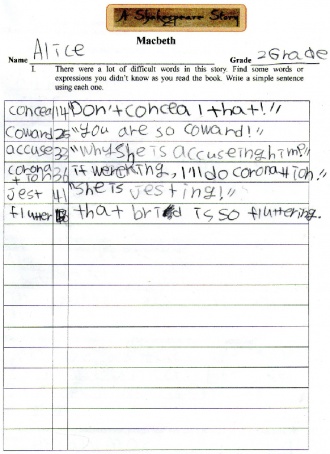 A Shakespeare Story
Macbeth
Name Alice Grade 2Grade
1. There were a lot of difficult words in this story. Find some words or
expressions you didn't know as you read the book. Write a simple sentence
using each one.
conceal 14 "Don't conceal that!"
coward 25 "you are so coward!"
accuse 33 "why she is accuseing him?"
corona+ion 36 if were king, I'll do coronation!
Jest 41 "she is jesting!"
flutter that brid is so fluttering.